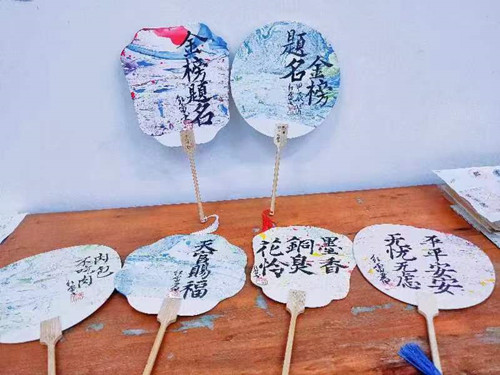 金榜題名
金榜
題名
肉包
不吃肉
天官賜福
墨香
銅臭
花怜
平平安安
无忧无虑